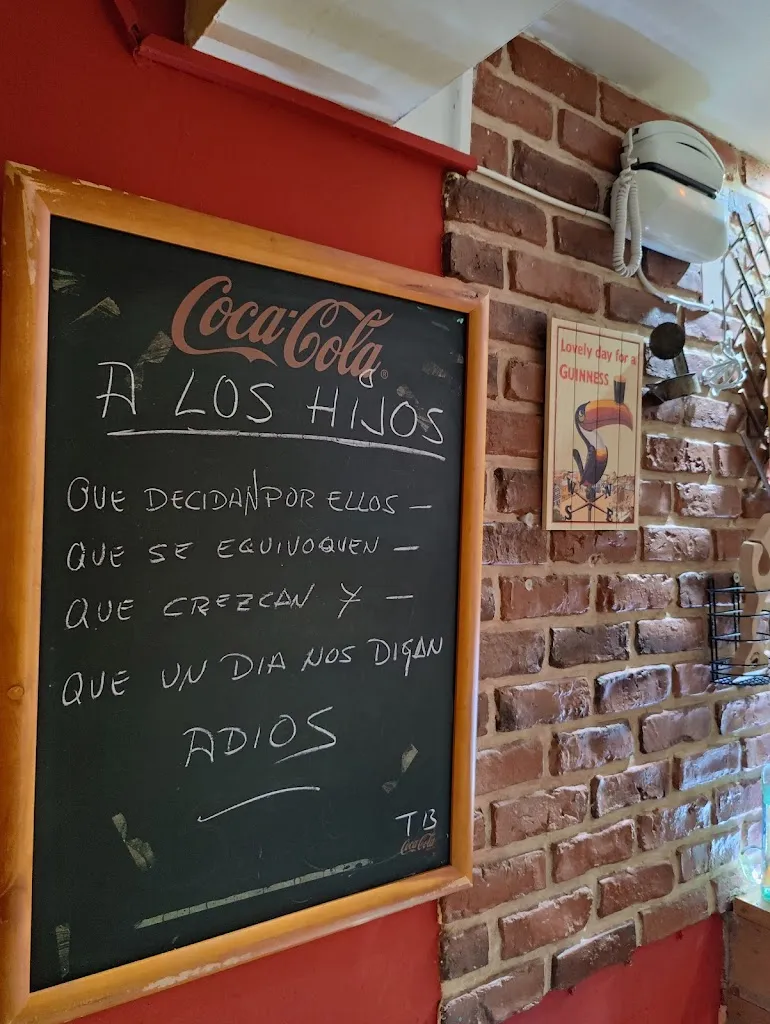 Coca-Cola
A LOS HIJOS
QUE DECIDAN POR ELLOS —
QUE SE EQUIVOQUEN —
QUE CREZCAN Y —
QUE UN DIA NOS DIGAN
ADIOS
TB
Coca-Cola
Lovely day for a
GUINNESS
W N
S E